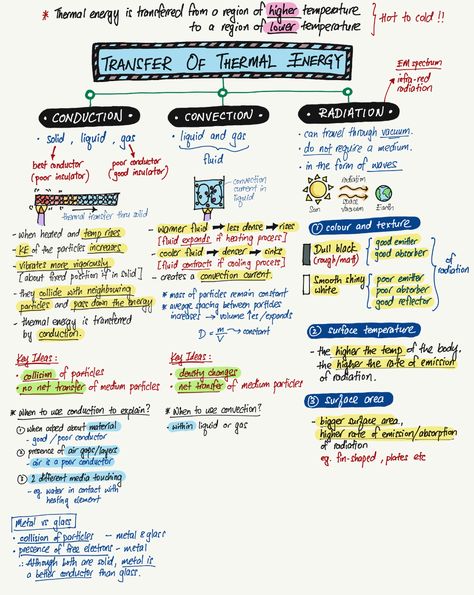 * Thermal energy is transferred from a region of higher temperature
to a region of lower temperature
Hot to cold !!
TRANSFER OF THERMAL ENERGY
EM spectrum
infra-red
radiation
CONDUCTION
• solid, liquid, gas
best conductor
(poor insulator)
poor conductor
(good insulator)
thermal transfer thru solid
- when heated and temp rises
- KE of the particles increases
- vibrates more vigorously
[about fixed position if in solid]
- they collide with neighbouring
particles and pass down the energy
- thermal energy is transferred
by conduction.
Key Ideas:
• collision of particles
• no net transfer of medium particles
* When to use conduction to explain?
① when asked about material
- good / poor conductor
② presence of air gaps/layers
- air is a poor conductor
③ 2 different media touching
- eg. water in contact with
heating element
Metal vs glass
• collision of particles — metal & glass
• presence of free electrons - metal
∴ Although both are solid, metal is
a better conductor than glass.
CONVECTION
• liquid and gas
fluid
convection
current in
liquid
- warmer fluid → less dense → rises
[fluid expands if heating process]
- cooler fluid → denser → sinks
[fluid contracts if cooling process]
- creates a convection current.
* mass of particles remain constant
* average spacing between particles
increases → volume ↑es / expands
D = m/V → constant
Key Ideas:
• density changes
• net transfer of medium particles
* When to use convection?
- within liquid or gas
RADIATION
• can travel through vacuum.
• do not require a medium.
• in the form of waves
Sun
radiation
space
vacuum
Earth
① colour and texture
Dull black
(rough/matt)
good emitter
good absorber
Smooth shiny
white
poor emitter
poor absorber
good reflector
of
radiation
② surface temperature
- the higher the temp of the body,
the higher the rate of emission
of radiation.
③ surface area
- bigger surface area,
higher rate of emission/absorption
of radiation
eg. fin-shaped, plates etc